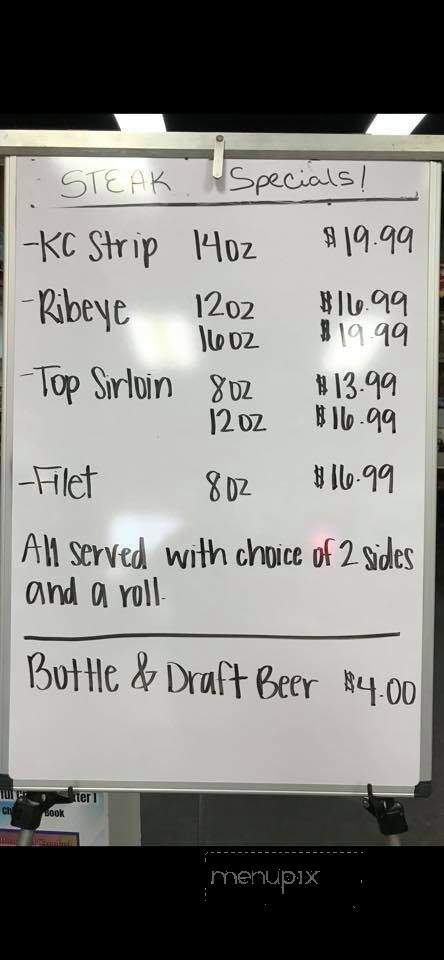 STEAK Specials!
-KC Strip 14oz $19.99
-Ribeye 12oz $16.99
16oz $19.99
-Top Sirloin 8oz $13.99
12oz $16.99
-Filet 8oz $16.99
All served with choice of 2 sides
and a roll.
Bottle & Draft Beer $4.00
Book
menupix